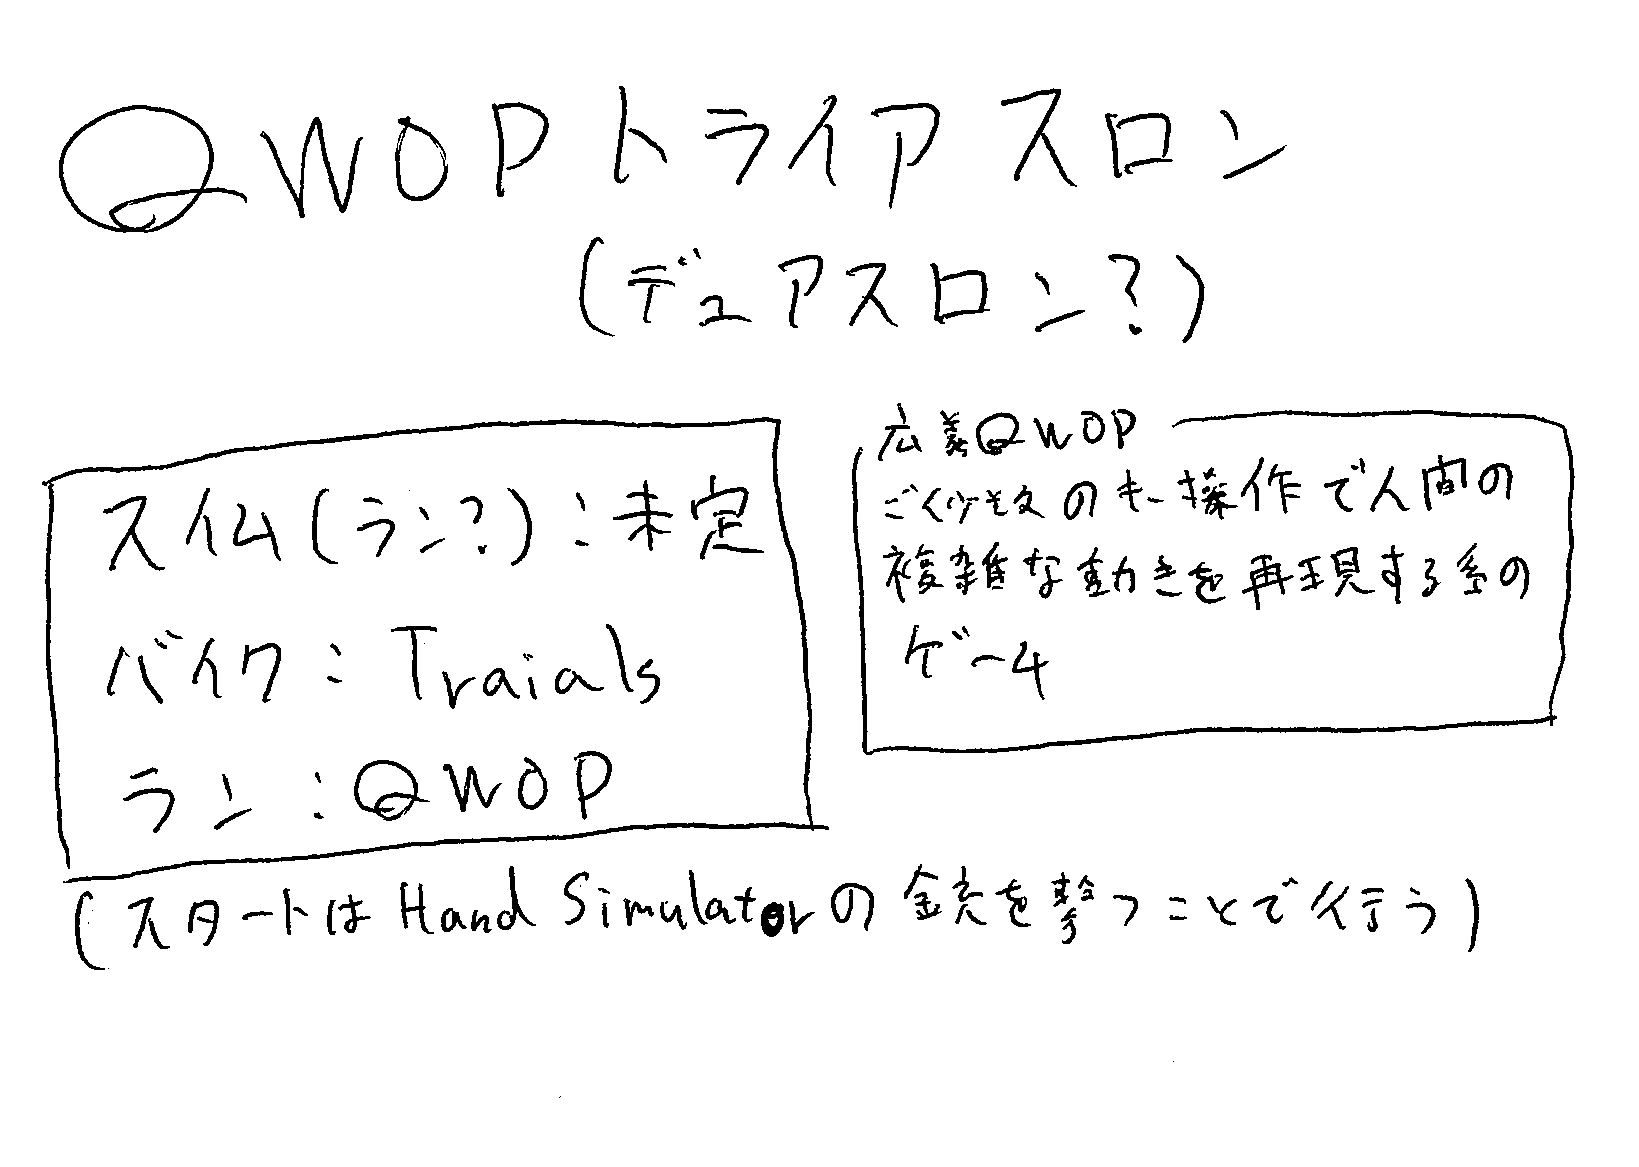 QWOPトライアスロン
(デュアスロン?)
スイム(ラン?):未定
バイク:Traials
ラン:QWOP
広義QWOP
ごく少数のキー操作で人間の
複雑な動きを再現する系の
ゲーム
(スタートはHand Simulatorの銃を撃つことで行う)